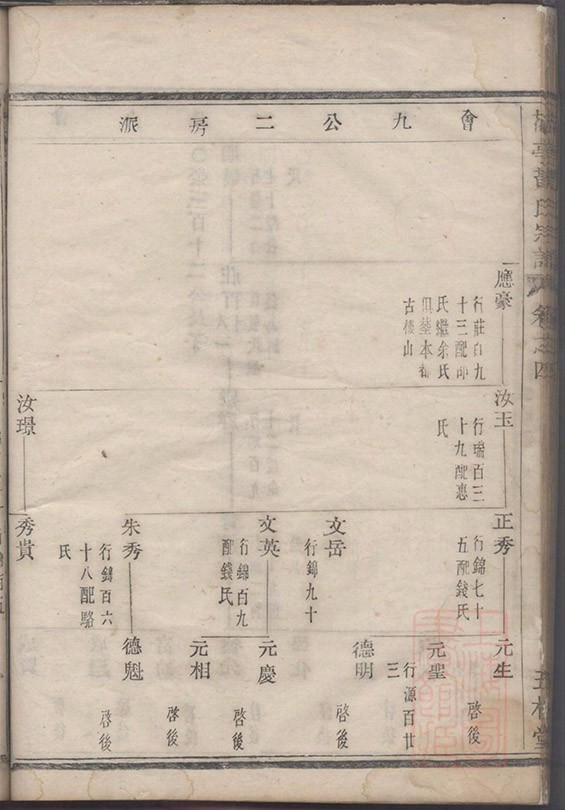 氏宗譜 卷之四
會九公二房派
應豪
行莊百九
十三配邵
氏繼余氏
俱塟本都
古樓山
汝玉
行瑞百三
十九配惠
氏
汝璟
正秀
行錦七十
五配錢氏
文岳
行錦九十
文英
行錦百九
配錢氏
朱秀
行錦百六
十八配駱
氏
秀貴
元生
啓後
元聖
行源百廿
三
德明
啓後
元慶
啓後
元相
啓後
德魁
啓後